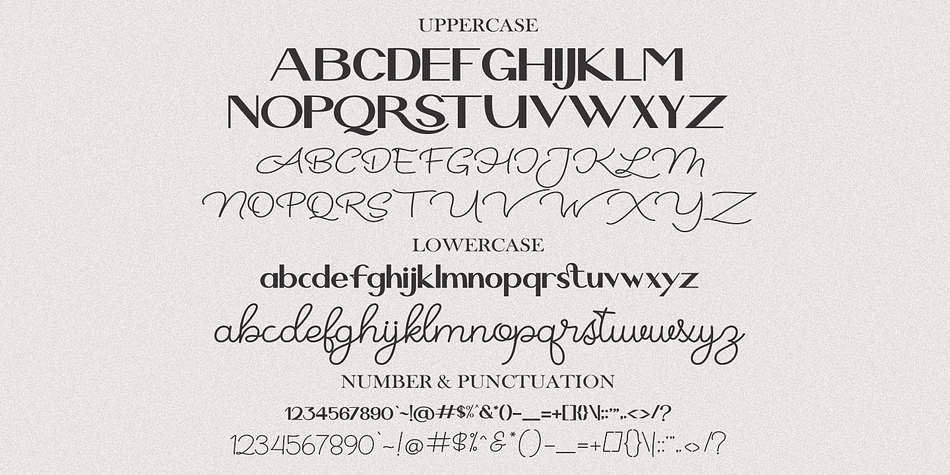 UPPERCASE
ABCDEFGHIJKLM
NOPQRSTUVWXYZ
ABCDEFGHIJKLM
NOPQRSTUVWXYZ
LOWERCASE
abcdefghijklmnopqrstuvwxyz
abcdefghijklmnopqrstuvwxyz
NUMBER & PUNCTUATION
1234567890`~!@#$%^&*()-_=+[]{}\|;:'",.<>/?
1234567890`~!@#$%^&*()-_=+[]{}\|;:'",.<>/?